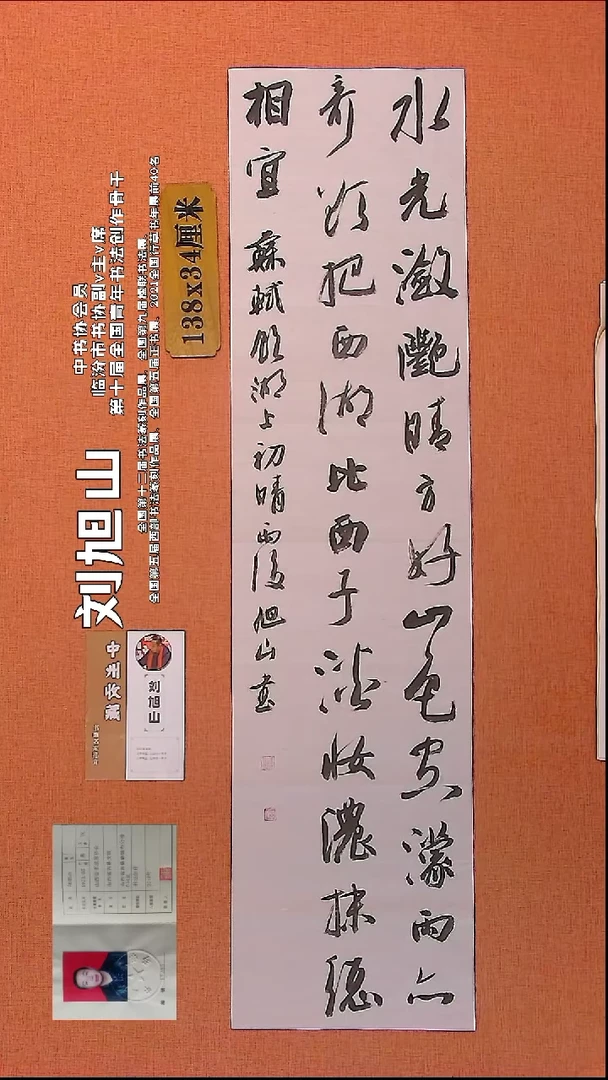 水光瀲灧晴方好山色空濛雨亦
奇欲把西湖比西子淡妆濃抹總
相宜 蘇軾飲湖上初晴雨後旭山書
138x34厘米
刘旭山
中书协会员
临汾市书协副v主v席
第十届全国青年书法创作骨干
全国第十二届书法篆刻作品展、全国第九届楹联书法展、
全国第五届西部书法篆刻作品展、全国第五届正书展、2021全国行草书年展前40名
刘旭山